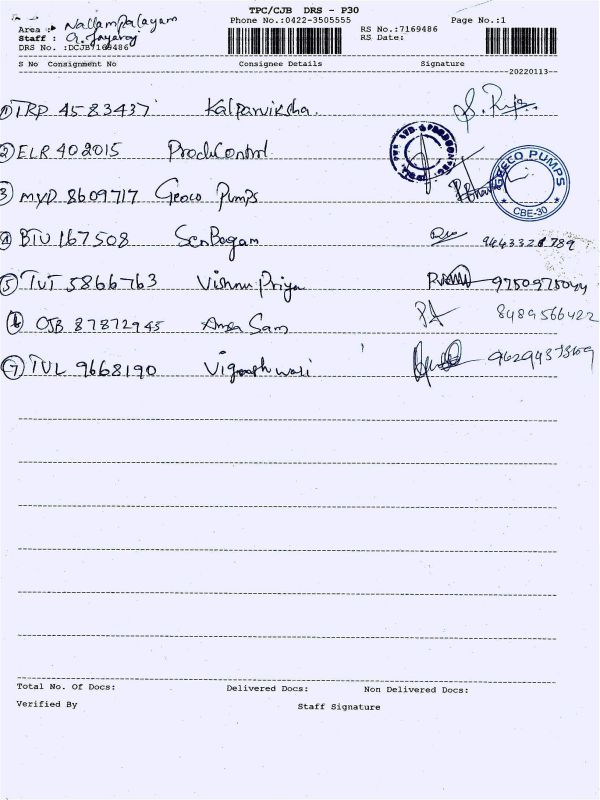 TPC/CJB DRS - P30
Area : Nallampalayam Phone No.:0422-3505555 Page No.:1
Staff : A. Jayaraj RS No.:7169486
DRS No. :DCJB7169486 RS Date:
S No Consignment No Consignee Details Signature
20220113
1 TRP 4583437 Kalpaviksha. S. Puja
2 ELR 402015 Produ Control
3 MYD 8609717 Geoco Pumps GEECO PUMPS CBE-30
4 BTU 167508 9443328789
5 TUT 5866763 Vishnu Priya 9750975044
6 CJB 87872945 8489566422
7 TUL 9668190 9629437369
Total No. Of Docs: Delivered Docs: Non Delivered Docs:
Verified By Staff Signature